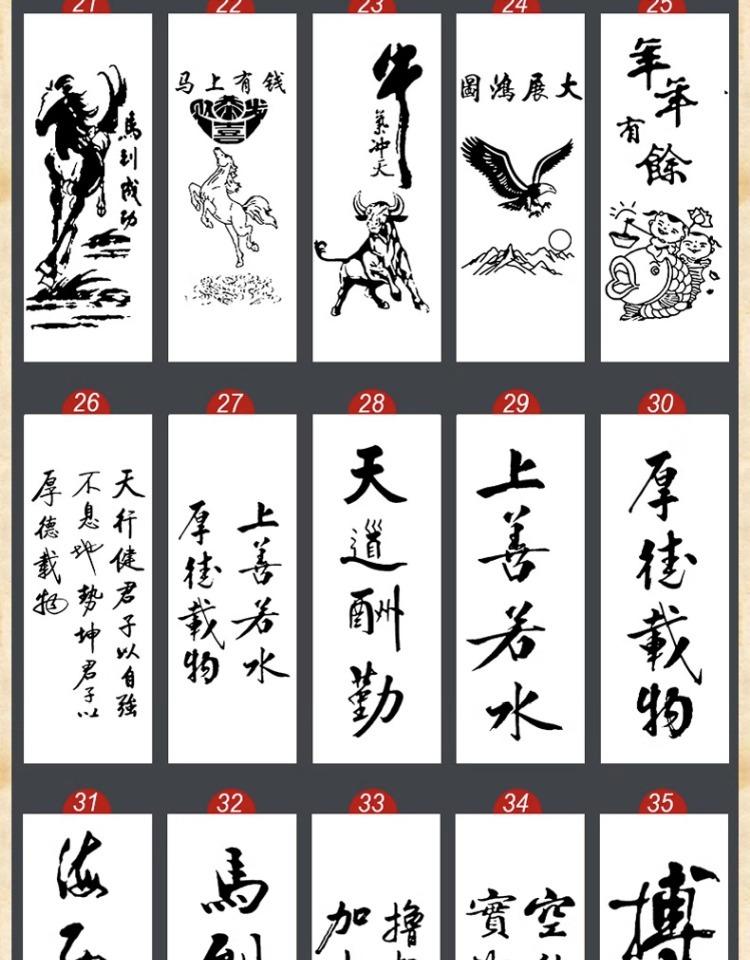 21
馬到成功
22
马上有钱
23
牛
氣冲天
24
大展鴻圖
25
年年
有餘
26
天行健君子以自強
不息地勢坤君子以
厚德載物
27
上善若水
厚德載物
28
天道酬勤
29
上善若水
30
厚德載物
31
海
32
馬到
33
擼
加
34
空
實
35
搏